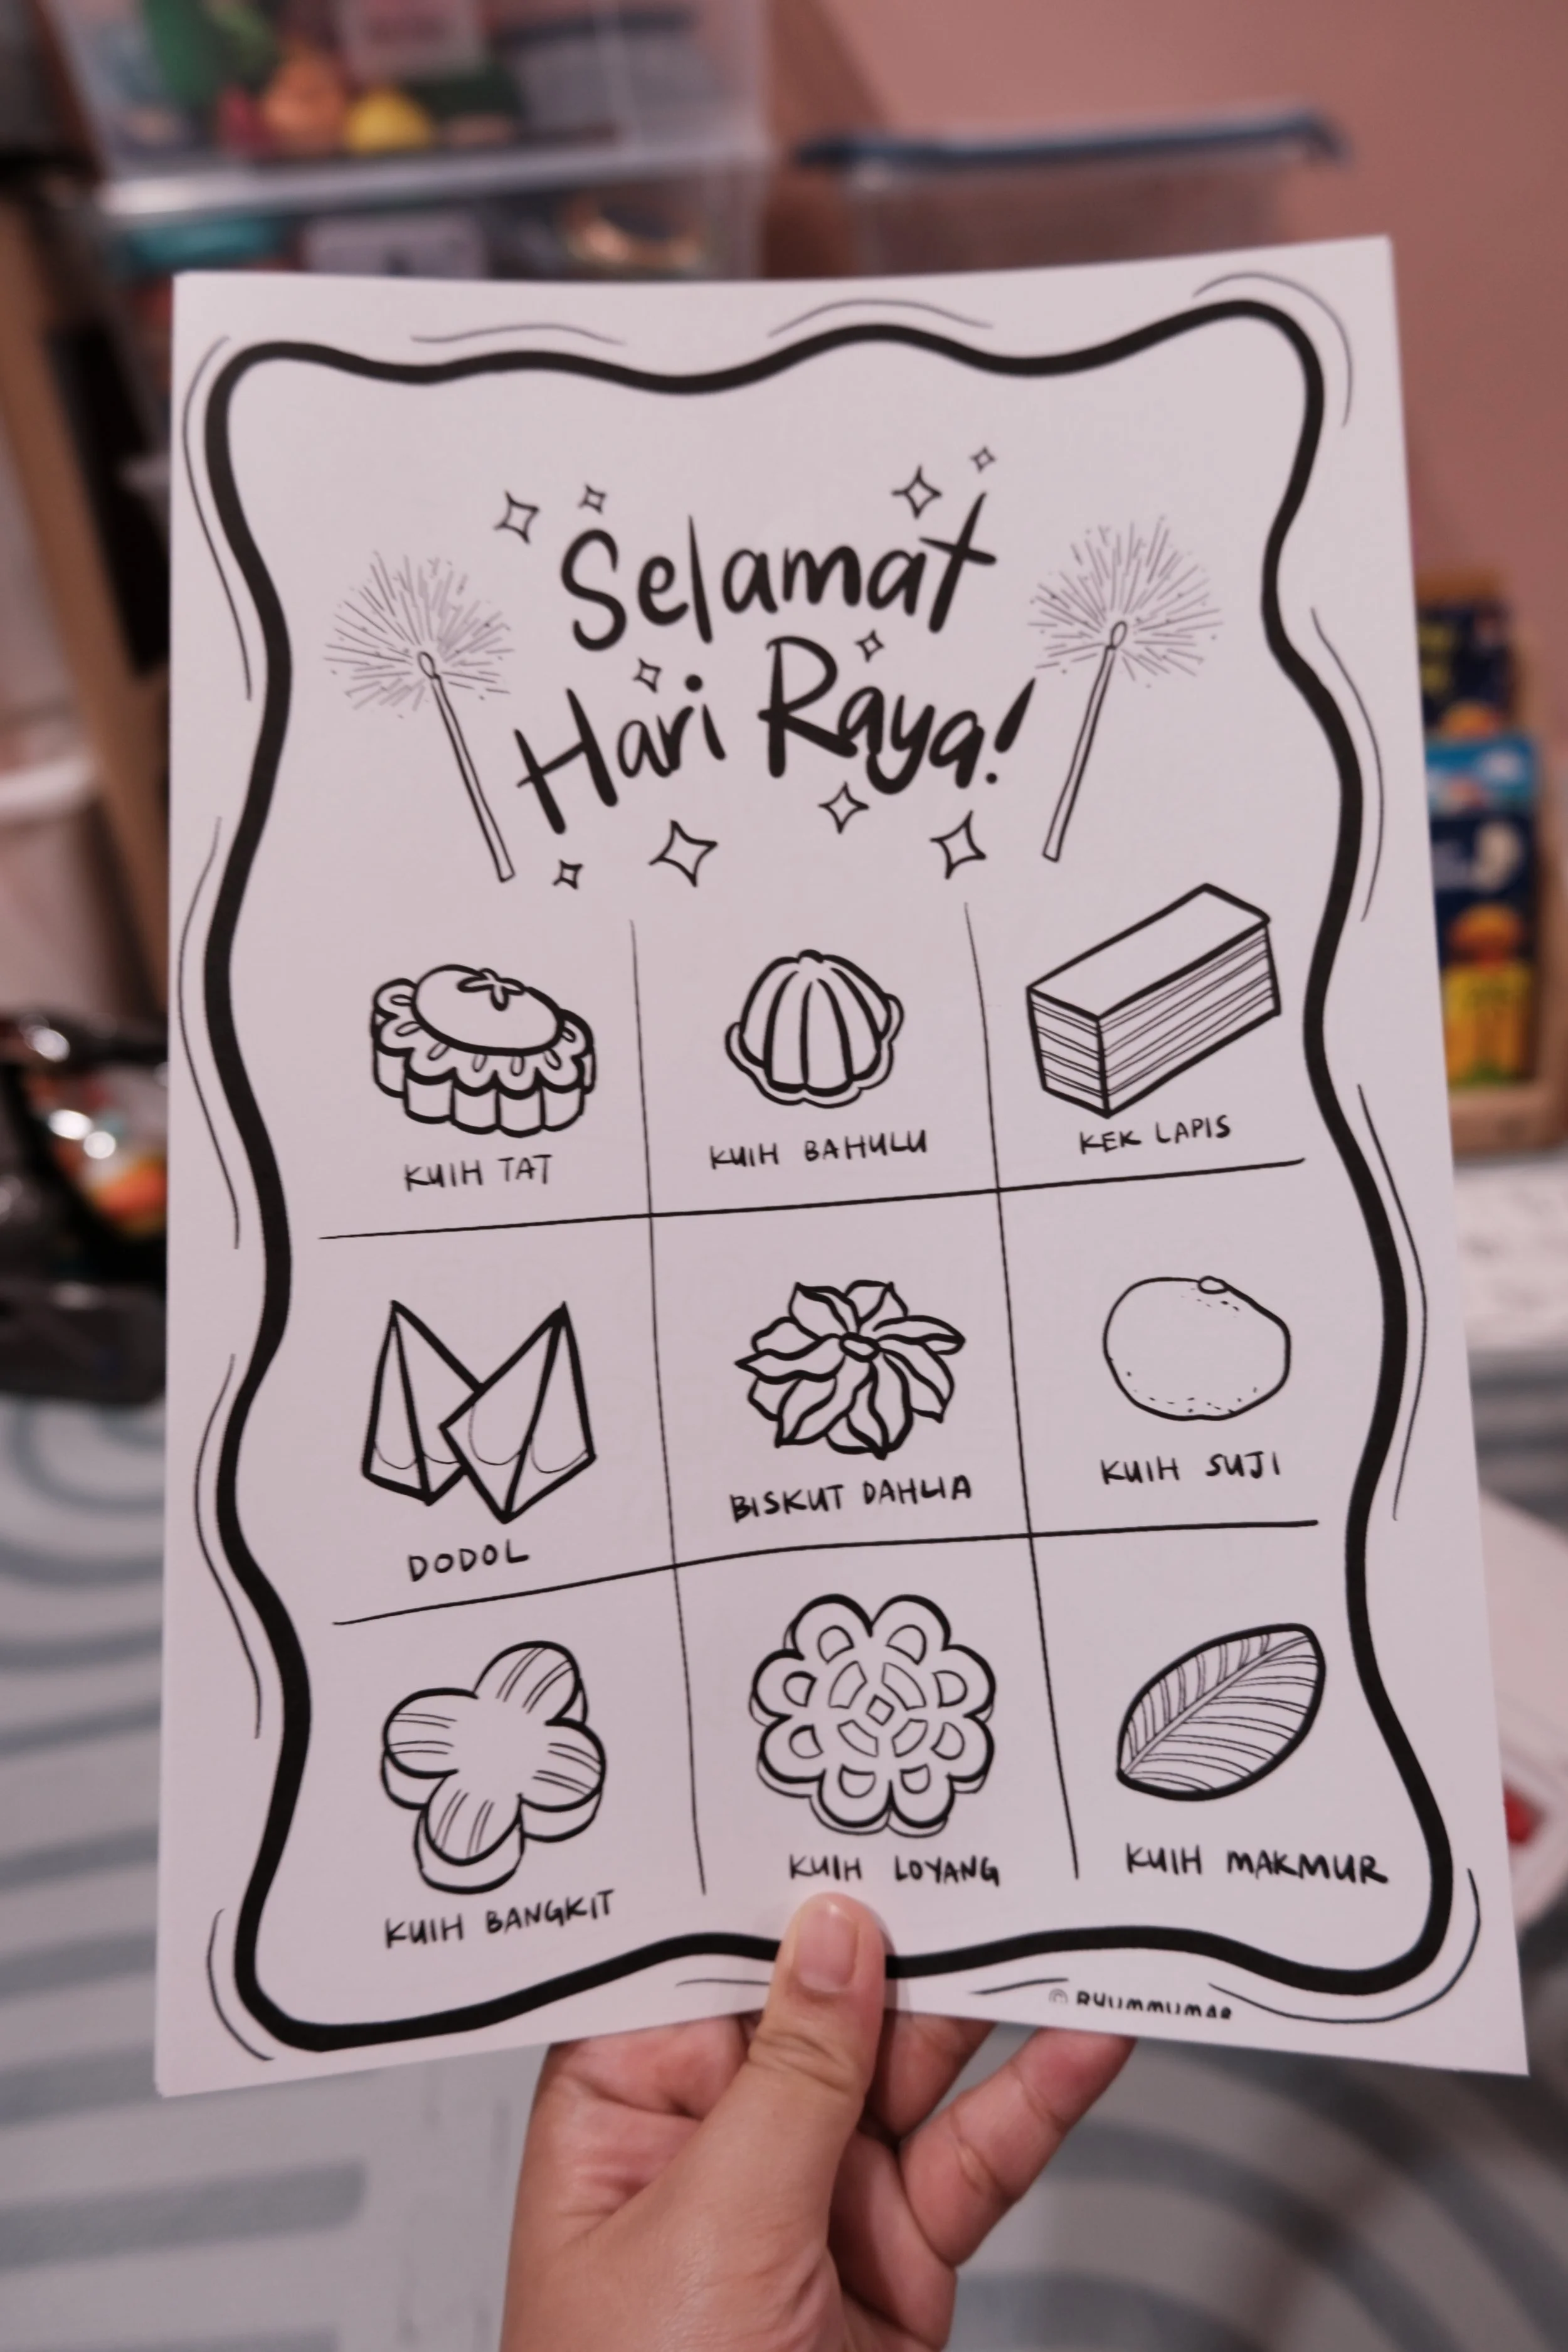 Selamat
Hari Raya!
KUIH TAT
KUIH BAHULU
KEK LAPIS
DODOL
BISKUT DAHLIA
KUIH SUJI
KUIH BANGKIT
KUIH LOYANG
KUIH MAKMUR